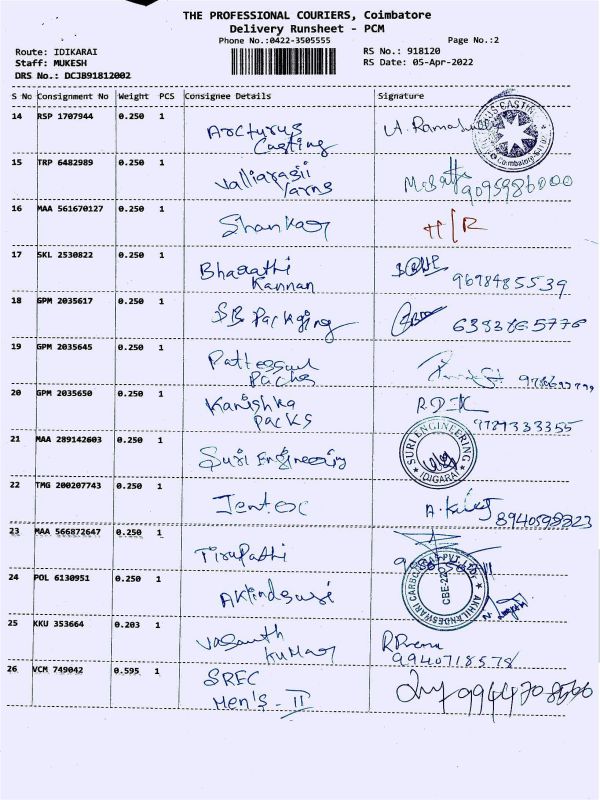 THE PROFESSIONAL COURIERS, Coimbatore
Delivery Runsheet - PCM
Phone No.:0422-3505555 Page No.:2
Route: IDIKARAI RS No.: 918120
Staff: MUKESH RS Date: 05-Apr-2022
DRS No.: DCJB91812002
S No Consignment No Weight PCS Consignee Details Signature
14 RSP 1707944 0.250 1
Arcturus
Casting
15 TRP 6482989 0.250 1
Yarns 9095986000
16 MAA 561670127 0.250 1
Shankar H/R
17 SKL 2530822 0.250 1
Bharathi
Kannan 9698485539
18 GPM 2035617 0.250 1
SB Packging
19 GPM 2035645 0.250 1
Packs
20 GPM 2035650 0.250 1
Kanishka
Packs 9789333355
21 MAA 289142603 0.250 1
Suri Engineering
SURI ENGINEERING
IDIGARAI
22 TMG 200207743 0.250 1
Jentex
23 MAA 566872647 0.250 1
Tirupathi
24 POL 6130951 0.250 1
CBE-22
25 KKU 353664 0.203 1
Vasanth
Kumar 9940718578
26 VCM 749042 0.595 1
SREC
Men's - II